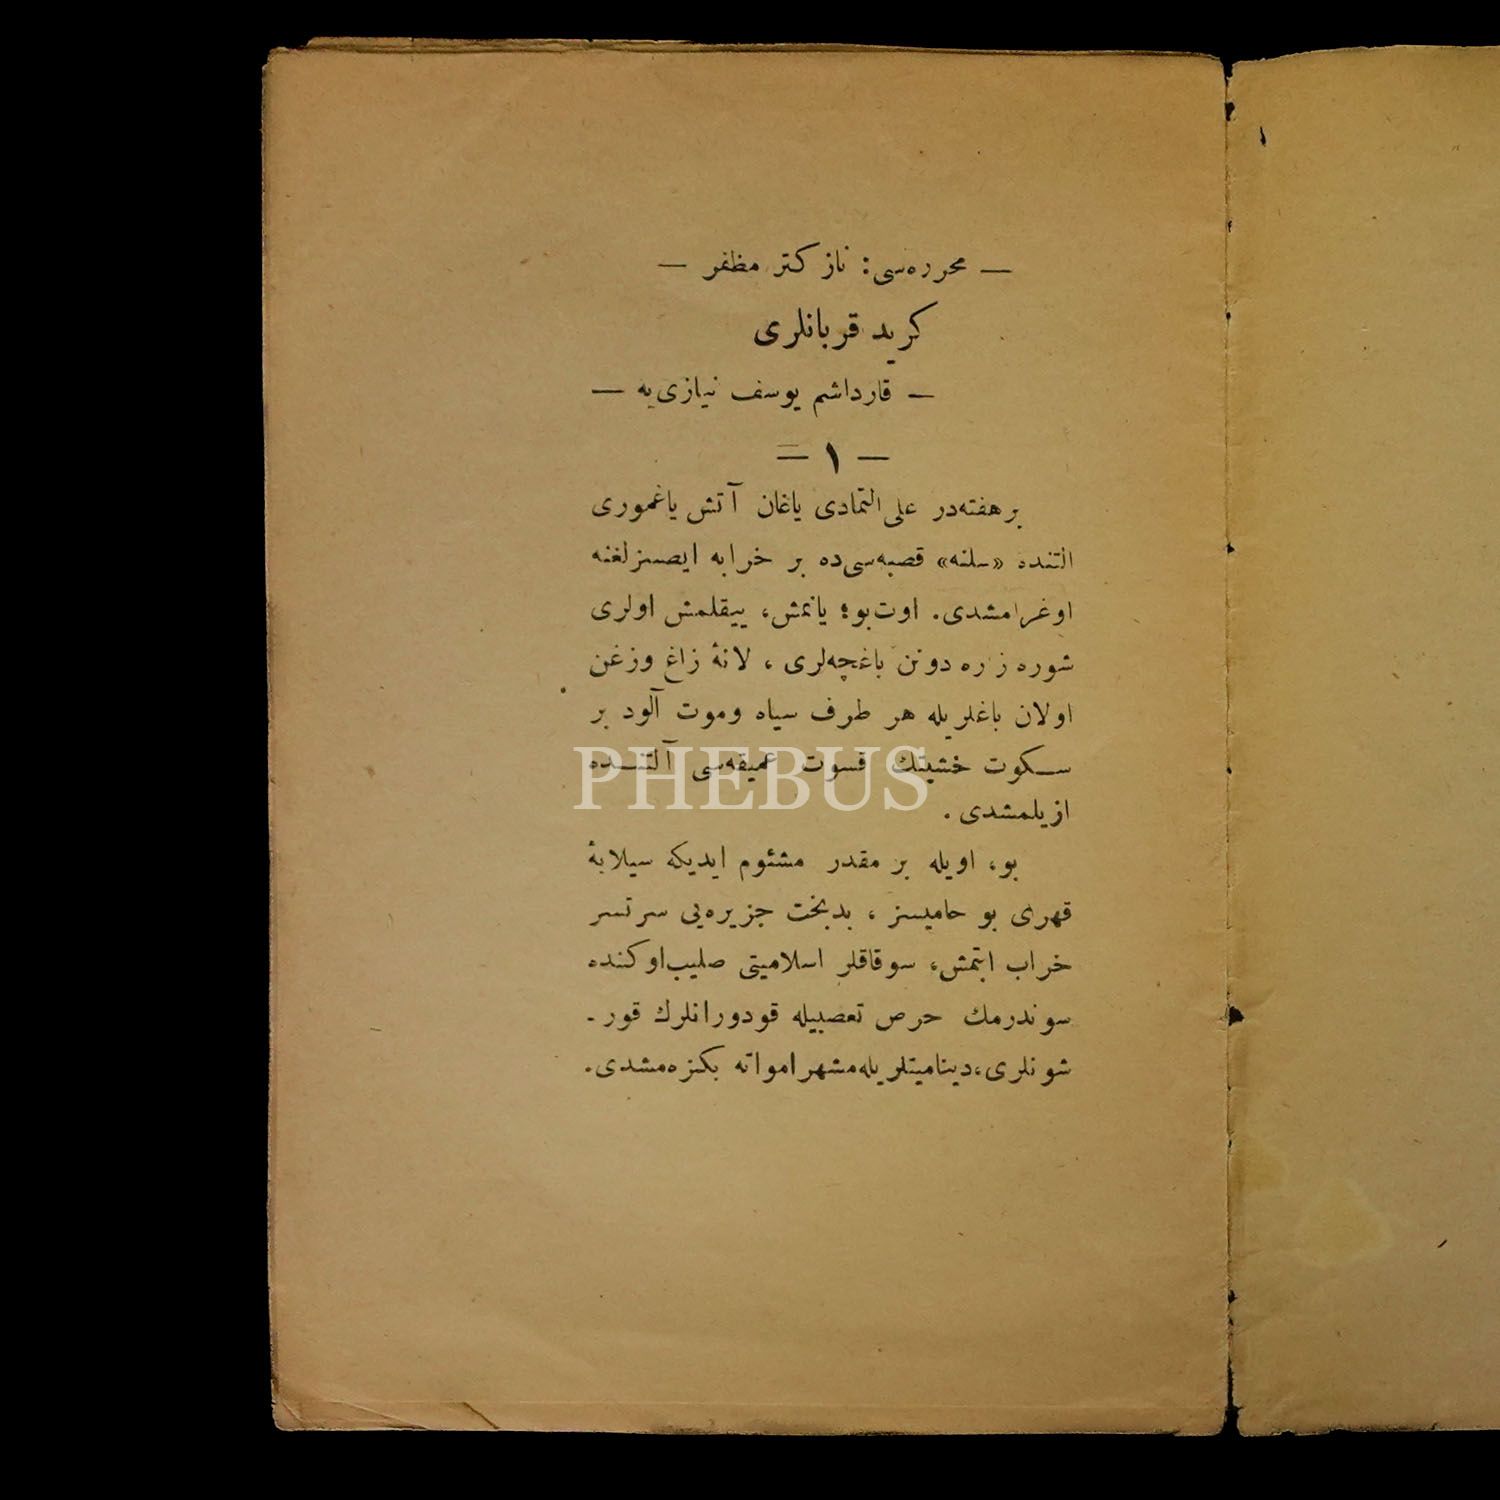 — محرره‌سی: نازكتر مظفر —
كريد قربانلری
— قارداشم يوسف نيازی‌يه —
— ١ —
بر هفته‌در علی التمادی ياغان آتش ياغموری
التنده «سلنه» قصبه‌سی‌ده بر خرابه ايصسزلغنه
اوغرامشدی. اوت‌بو؛ يانمش، ييقلمش اولری
شوره زره دونن باغچه‌لری ، لانهٔ زاغ وزغن
اولان باغلريله هر طرف سياه وموت آلود بر
سكوت خشيتك قسوت عميقه‌سی آلتنده
ازيلمشدی .
بو، اويله بر مقدر مشئوم ايديكه سيلابهٔ
قهری بو حاميسز ، بدبخت جزيره‌يی سرتسر
خراب ايتمش، سوقاقلر اسلاميتی صليب‌اوكنده
سوندرمك حرص تعصبيله قودورانلرك قور-
شونلری، ديناميتلريله‌مشهر امواته بكزه‌مشدی.
PHEBUS